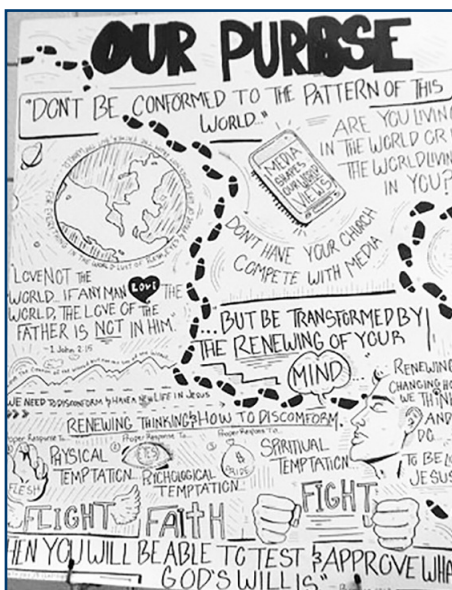 OUR PURPOSE
"DON'T BE CONFORMED TO THE PATTERN OF THIS
WORLD..."
ARE YOU LIVING
IN THE WORLD OR I
THE WORLD LIVIN
IN YOU?
MEDIA
SHAPES
OUR WORLD
VIEWS
DON'T HAVE YOUR CHURCH
COMPETE WITH MEDIA
"LOVE NOT THE
WORLD. IF ANY MAN LOVE THE
WORLD, THE LOVE OF THE
FATHER IS NOT IN HIM."
-1 John 2:15
...BUT BE TRANSFORMED BY
THE RENEWING OF YOUR
MIND
WE NEED TO DISCONFORM & HAVE A NEW LIFE IN JESUS
RENEWING THINKING & HOW TO DISCOMFORM.
RENEWING
CHANGING HO
WE THIN
AND
DO
TO BE LI
JESUS
Proper Response To...
PHYSICAL
TEMPTATION...
FLESH
FLIGHT
Proper Response To...
EYES
PSYCHOLOGICAL
TEMPTATION...
FAITH
Proper Response To...
PRIDE
SPIRITUAL
TEMPTATION
FIGHT
HEN YOU WILL BE ABLE TO TEST & APPROVE WHA
GOD'S WILL IS"